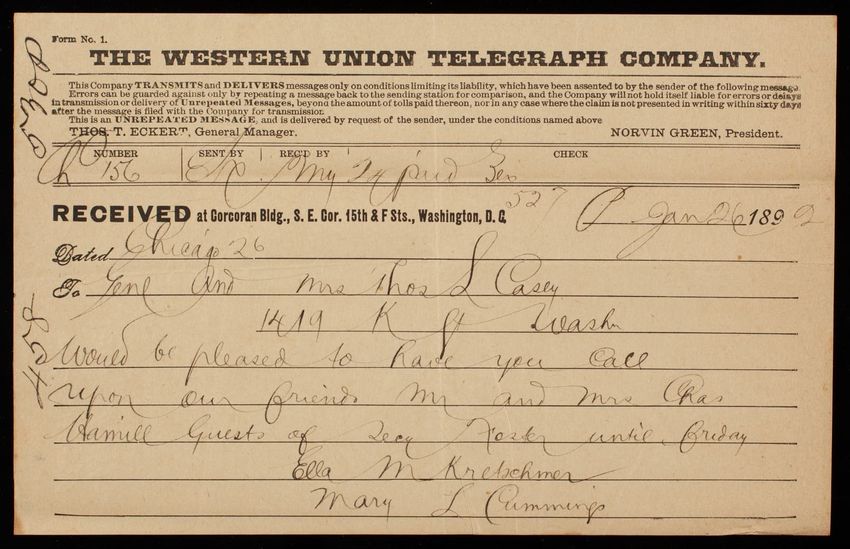 Form No. 1.
THE WESTERN UNION TELEGRAPH COMPANY.
This Company TRANSMITS and DELIVERS messages only on conditions limiting its liability, which have been assented to by the sender of the following message
Errors can be guarded against only by repeating a message back to the sending station for comparison, and the Company will not hold itself liable for errors or delays
in transmission or delivery of Unrepeated Messages, beyond the amount of tolls paid thereon, nor in any case where the claim is not presented in writing within sixty days
after the message is filed with the Company for transmission.
This is an UNREPEATED MESSAGE, and is delivered by request of the sender, under the conditions named above
THOS. T. ECKERT, General Manager. NORVIN GREEN, President.
NUMBER SENT BY REC'D BY CHECK
156 paid
527
RECEIVED at Corcoran Bldg., S. E. Cor. 15th & F Sts., Washington, D. C. Jan 26 1892
Dated Chicago 26
To Genl and Mrs Thos L Casey
1419 K St Washn
Would be pleased to have you call
upon our friends Mr and Mrs Chas
Hamill Guests of Secy Foster until Friday
Ella M Kretschmer
Mary L Cummings